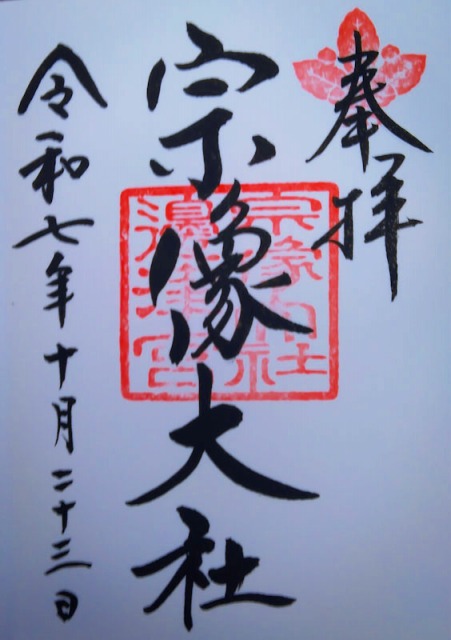 奉拝
宗像大社
宗像大社
邊津宮
令和七年十月二十三日